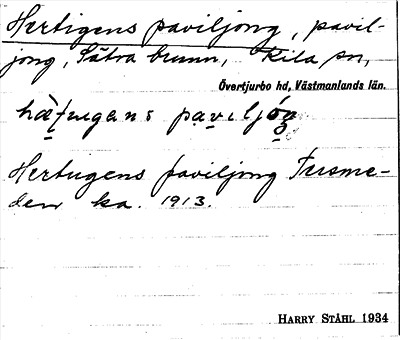 Hertigens paviljong, pavil-
jong, Sätra brunn, Kila sn,
Övertjurbo hd, Västmanlands län.
paviljong
Hertugens paviljong
den ka. 1913.
HARRY STÅHL 1934